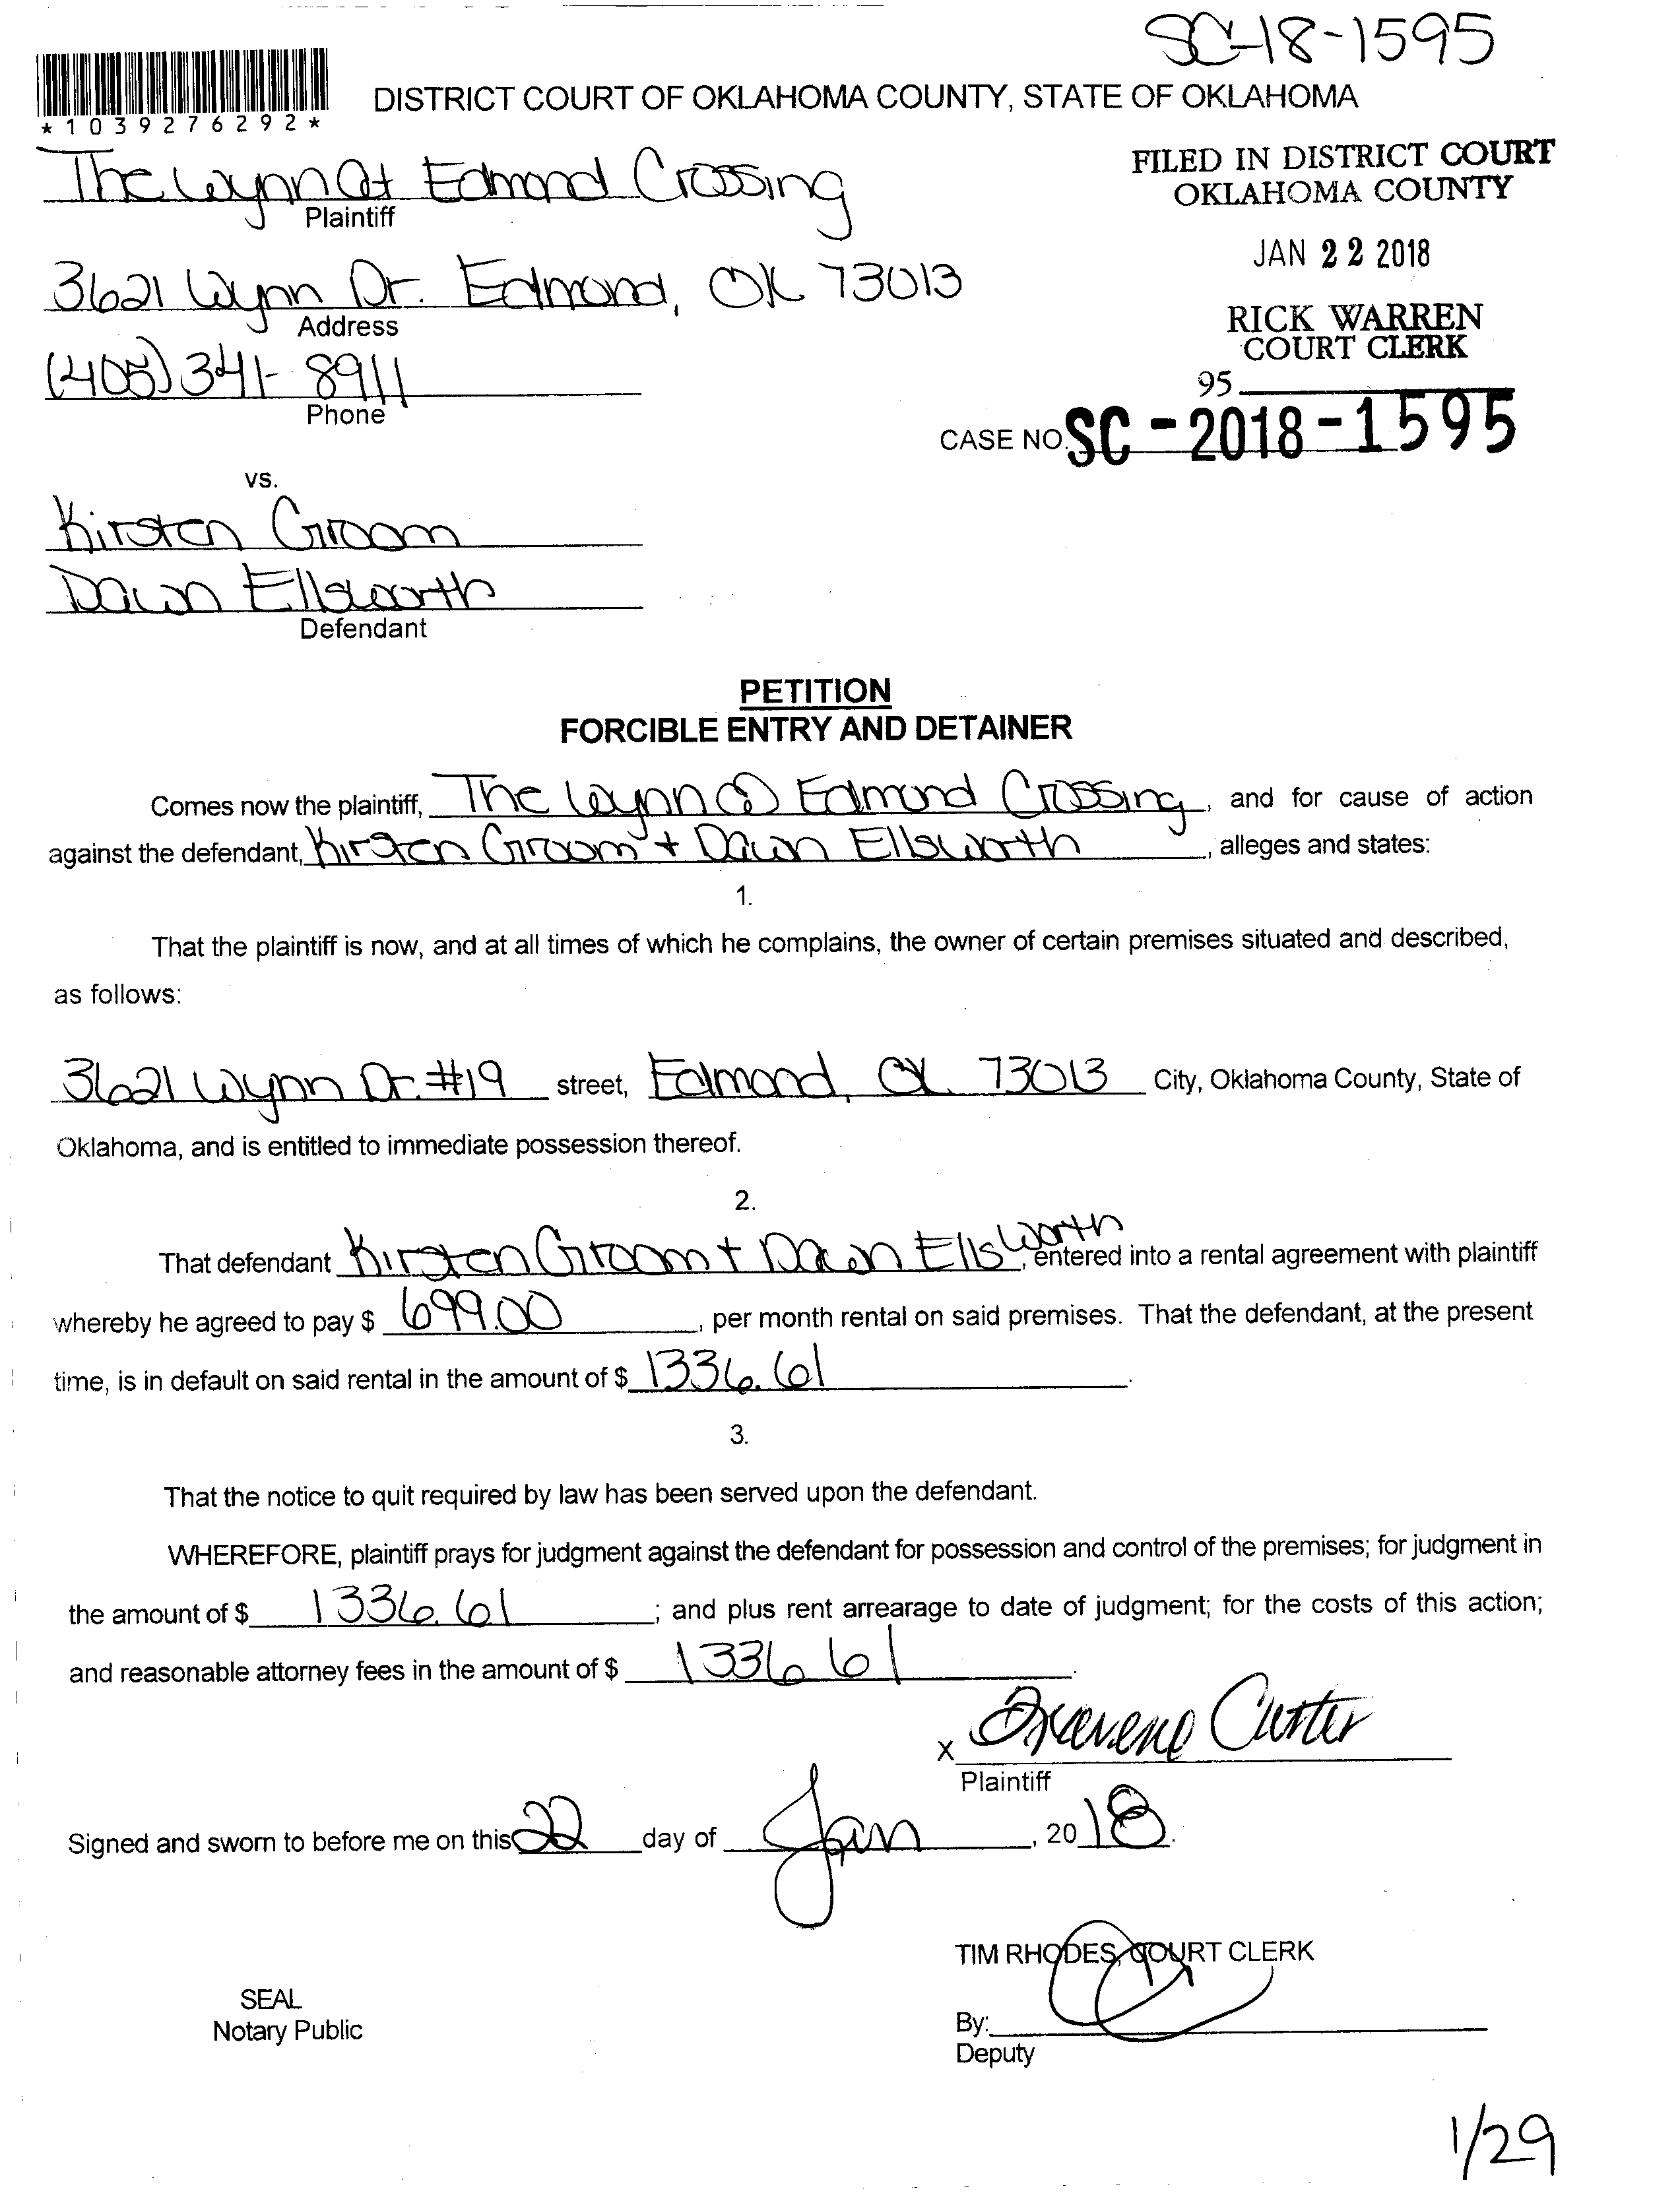 SC-18-1595
*1039276292*
DISTRICT COURT OF OKLAHOMA COUNTY, STATE OF OKLAHOMA
The Wynn At Edmond Crossing
Plaintiff
FILED IN DISTRICT COURT
OKLAHOMA COUNTY
JAN 22 2018
3621 Wynn Dr. Edmond, OK 73013
Address
RICK WARREN
COURT CLERK
(405) 341-8911
Phone
95
CASE NO. SC-2018-1595
vs.
Kirsten Groom
Dawn Ellsworth
Defendant
PETITION
FORCIBLE ENTRY AND DETAINER
Comes now the plaintiff, The Wynn @ Edmond Crossing, and for cause of action
against the defendant, Kirsten Groom + Dawn Ellsworth, alleges and states:
1.
That the plaintiff is now, and at all times of which he complains, the owner of certain premises situated and described,
as follows:
3621 Wynn Dr. #19 street, Edmond, OK 73013 City, Oklahoma County, State of
Oklahoma, and is entitled to immediate possession thereof.
2.
That defendant Kirsten Groom + Dawn Ellsworth, entered into a rental agreement with plaintiff
whereby he agreed to pay $ 699.00, per month rental on said premises. That the defendant, at the present
time, is in default on said rental in the amount of $ 1336.61.
3.
That the notice to quit required by law has been served upon the defendant.
WHEREFORE, plaintiff prays for judgment against the defendant for possession and control of the premises; for judgment in
the amount of $ 1336.61; and plus rent arrearage to date of judgment; for the costs of this action;
and reasonable attorney fees in the amount of $ 1336.61.
X
Plaintiff
Signed and sworn to before me on this 22 day of Jan, 2018.
TIM RHODES, COURT CLERK
SEAL
Notary Public
By:
Deputy
1/29